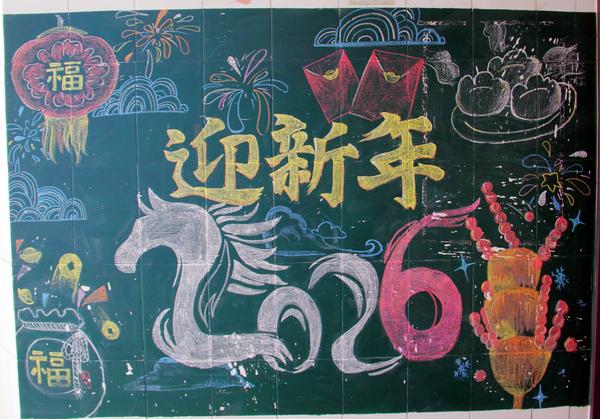 福
迎新年
2026
福